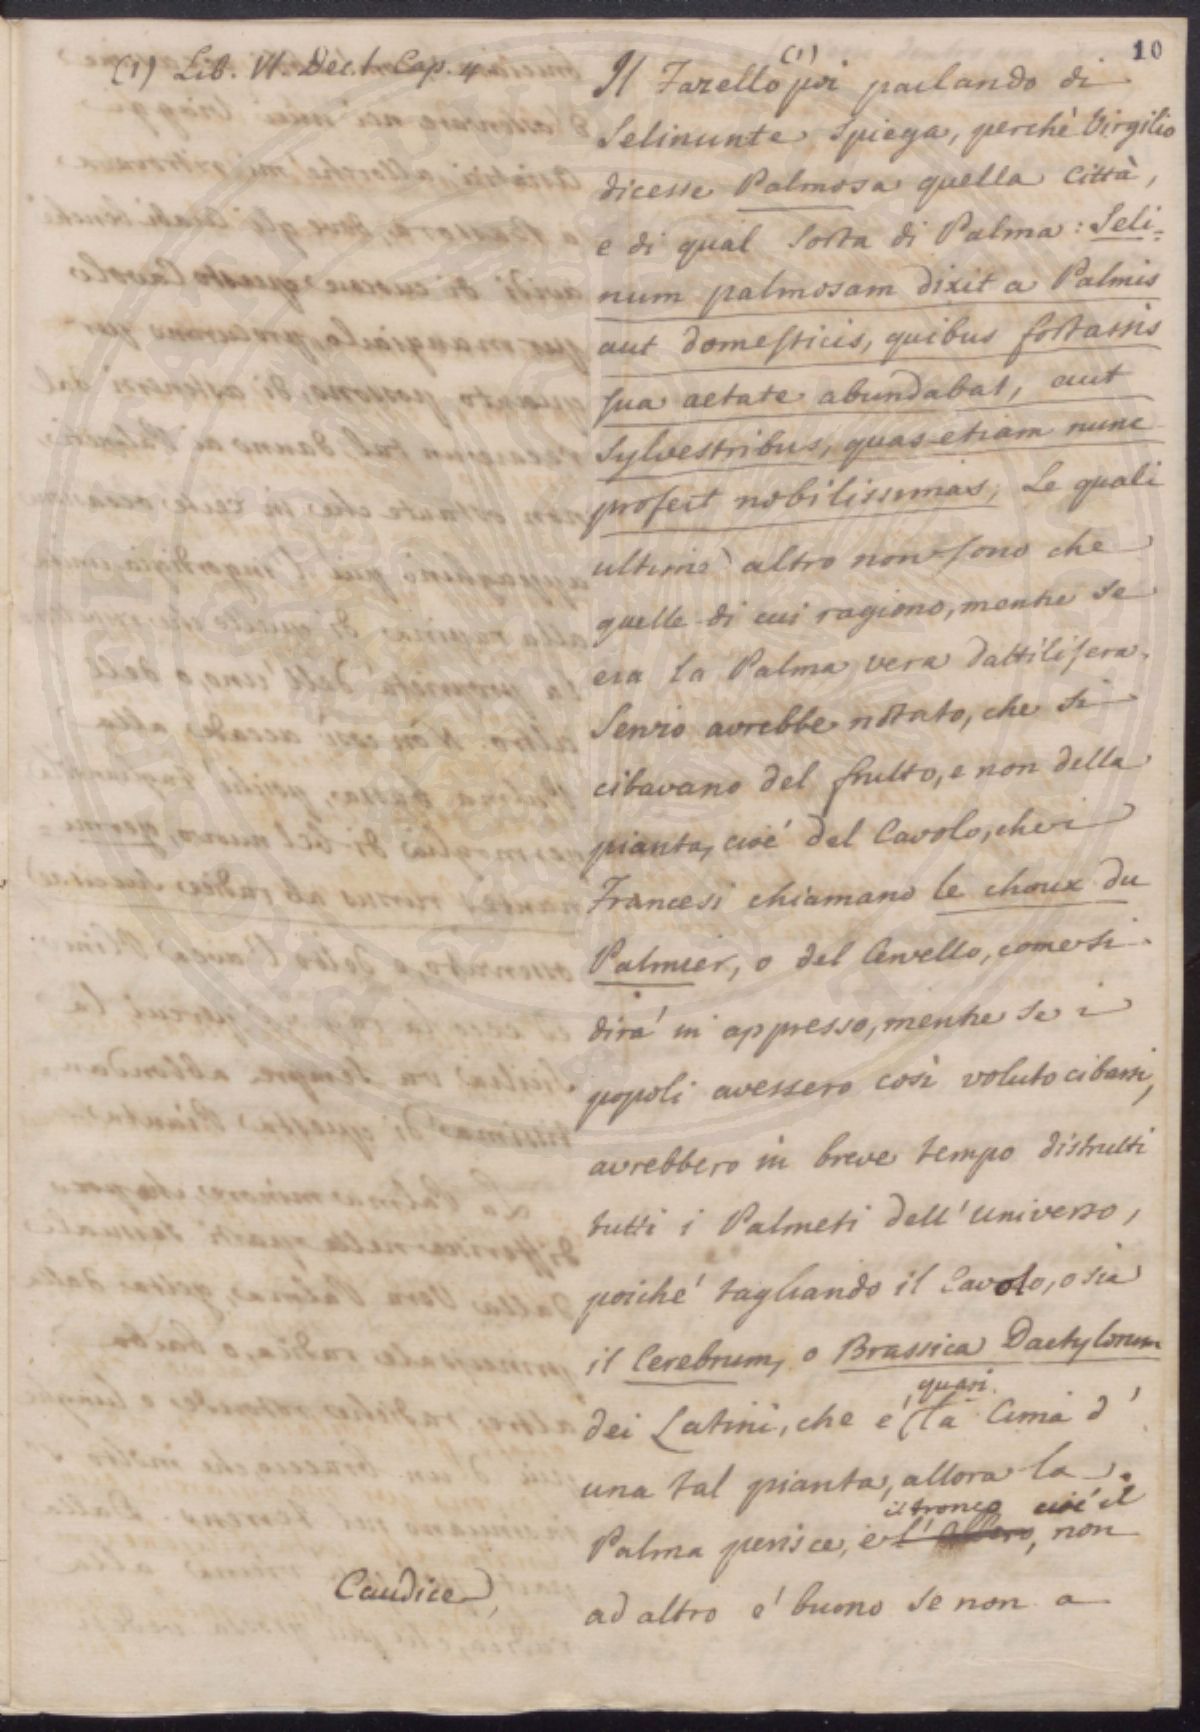 10
(1) Lib. VI. Dec. I. Cap. 4
Il Fazello (1) poi parlando di
Selinunte spiega, perchè Virgilio
dicesse Palmosa quella Città,
e di qual sorta di Palma: Seli=
num palmosam dixit a Palmis
aut domesticis, quibus fortassis
sua aetate abundabat, aut
sylvestribus, quas etiam nunc
profert nobilissimas, Le quali
ultime altro non sono che
quelle di cui ragiono, mentre se
era la Palma vera dattilifera,
Servio avrebbe notato, che si
cibavano del frutto, e non della
pianta, cioé del Cavolo, che i
Francesi chiamano le choux du
Palmier, o del Cervello, come si
dirá in appresso, mentre se i
popoli avessero così voluto cibarsi,
avrebbero in breve tempo distrutti
tutti i Palmeti dell'universo,
poiché tagliando il Cavolo, o sia
il Cerebrum, o Brassica Dactylorum
dei Latini, che é quasi la Cima d'
una tal pianta, allora la
Palma perisce, e l'Albero, il tronco cioé il non
Caudice,
ad altro é buono se non a